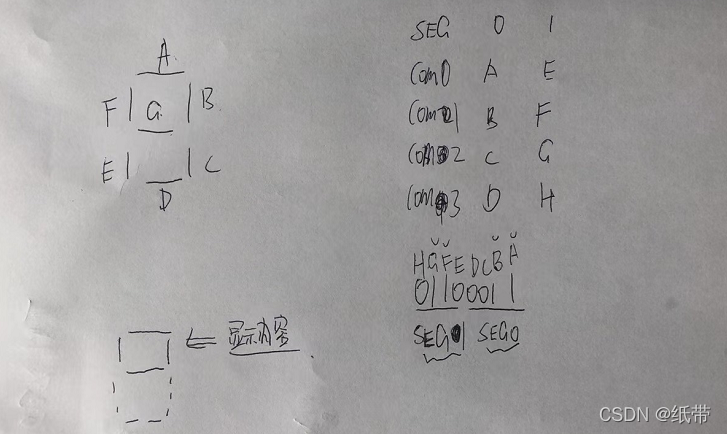 A
F G B
E C
D
SEG 0 1
COM0 A E
COM1 B F
COM2 C G
COM3 D H
HGFEDCBA
01100011
SEG1 SEG0
显示内容
CSDN @纸带